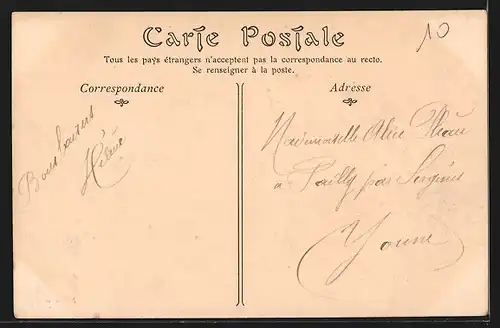 Carte Postale
10
Tous les pays étrangers n'acceptent pas la correspondance au recto.
Se renseigner à la poste.
Correspondance
Adresse
Bons baisers
Hélène
Mademoiselle Alice
à Pailly par Sergines
Yonne